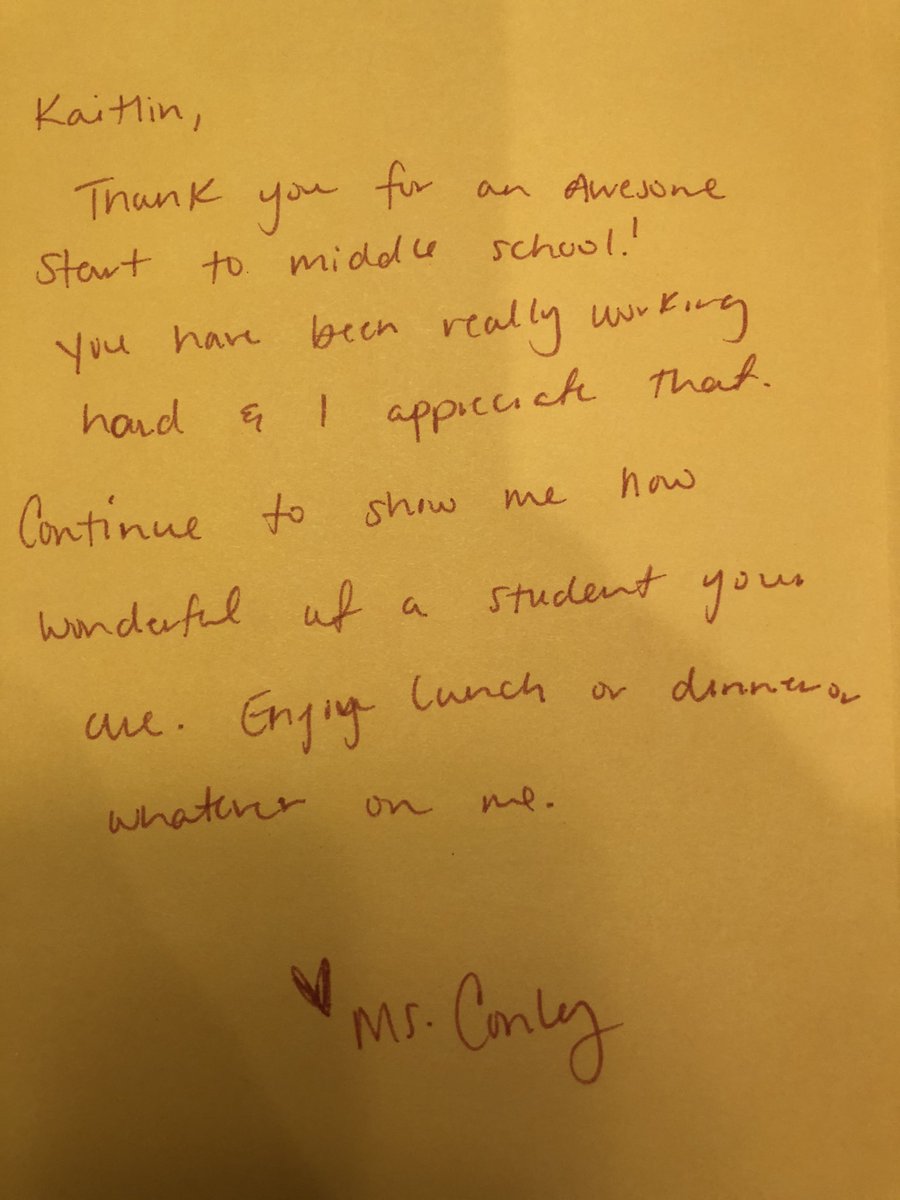 Kaitlin,
Thank you for an Awesome
Start to middle school!
You have been really working
hard & I appreciate that.
Continue to show me how
wonderful of a student you
are. Enjoy lunch or dinner or
whatever on me.
♥ Ms. Conley